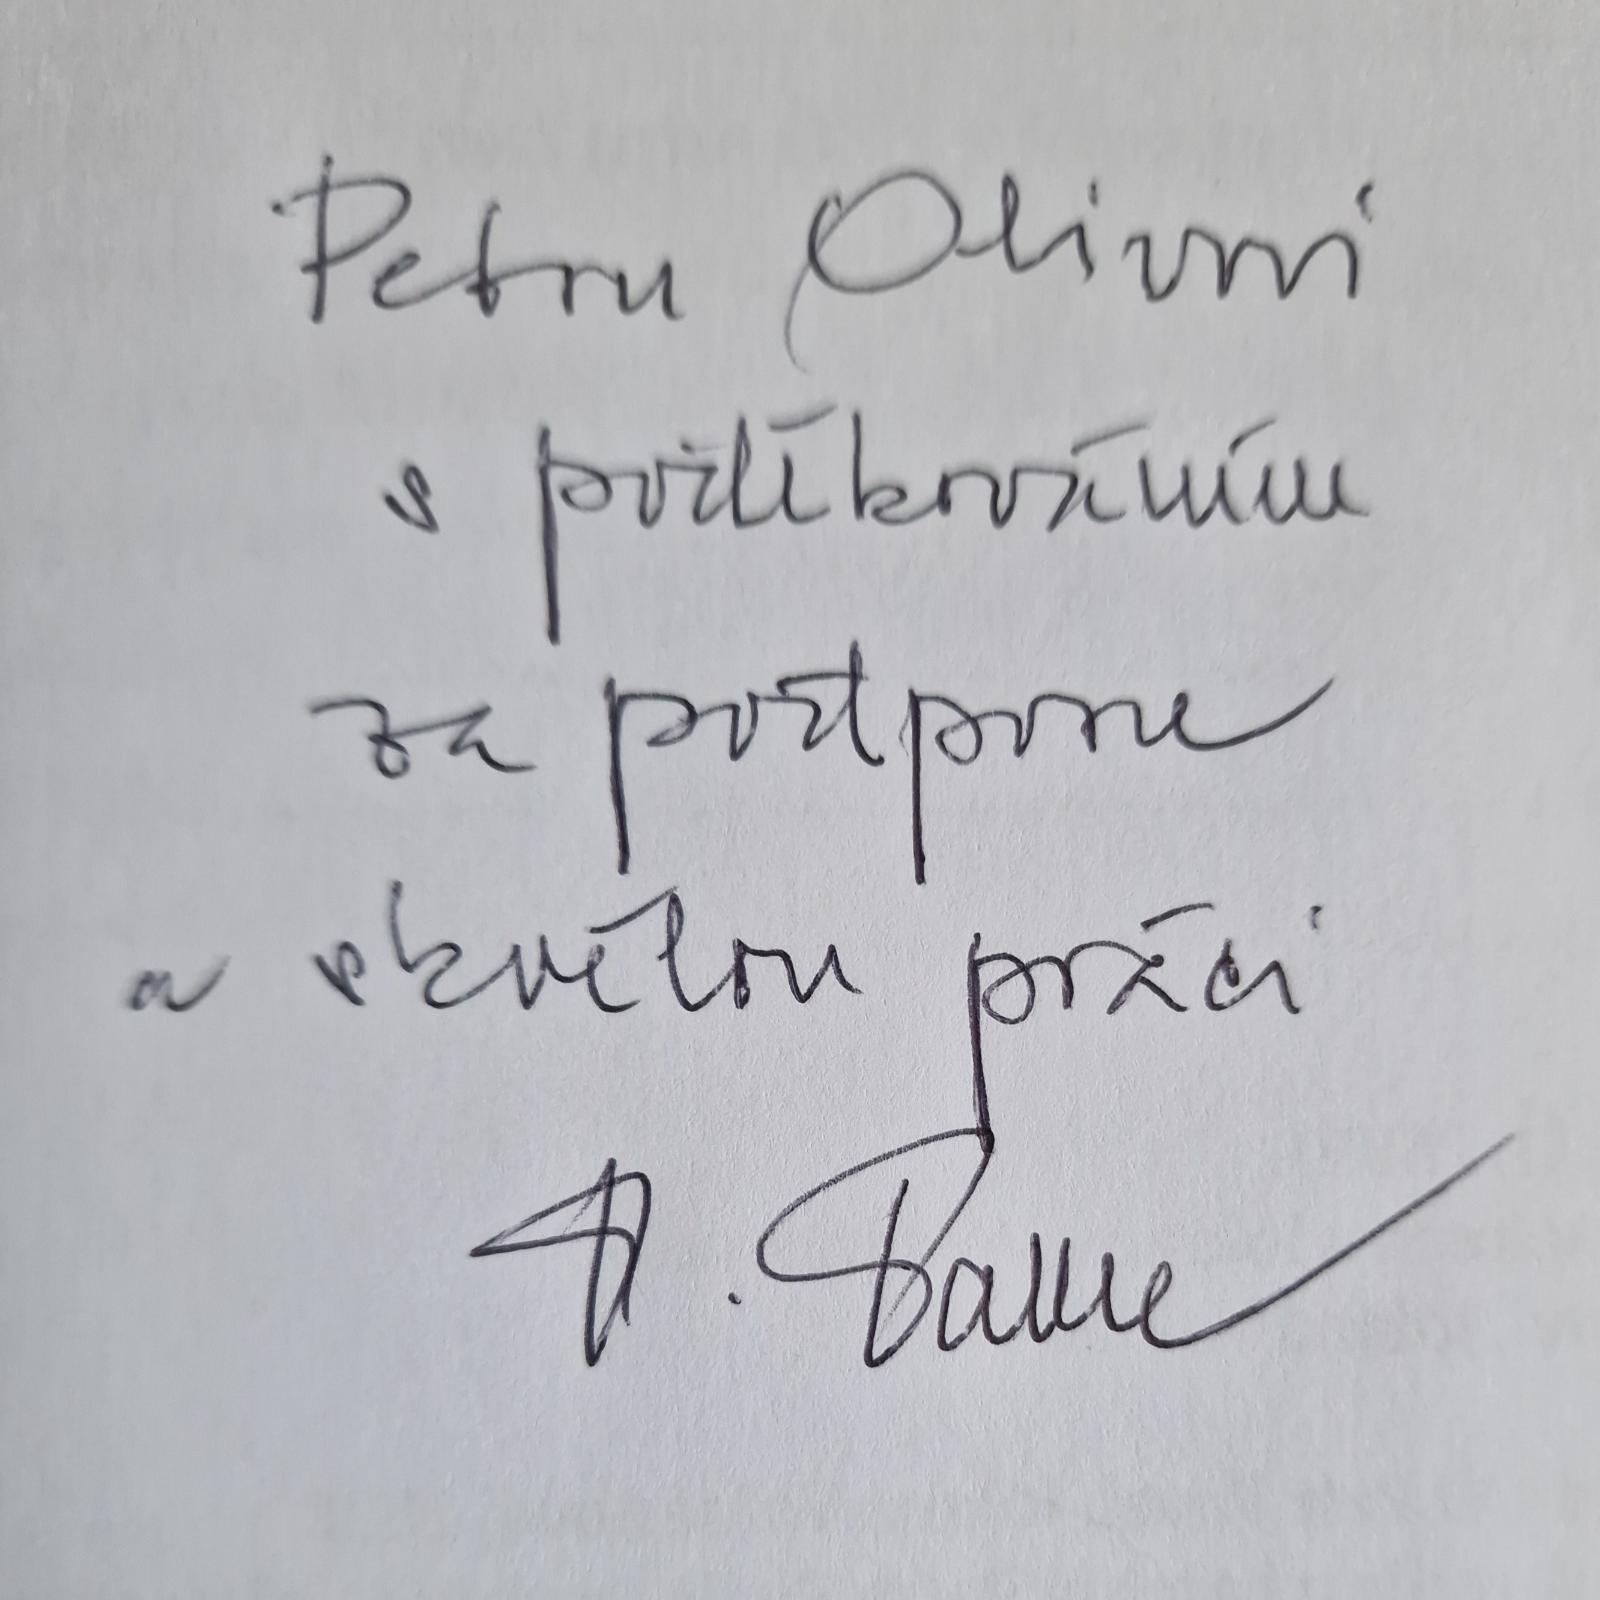 Petru Olivovi
s poděkováním
za podporu
a skvělou práci